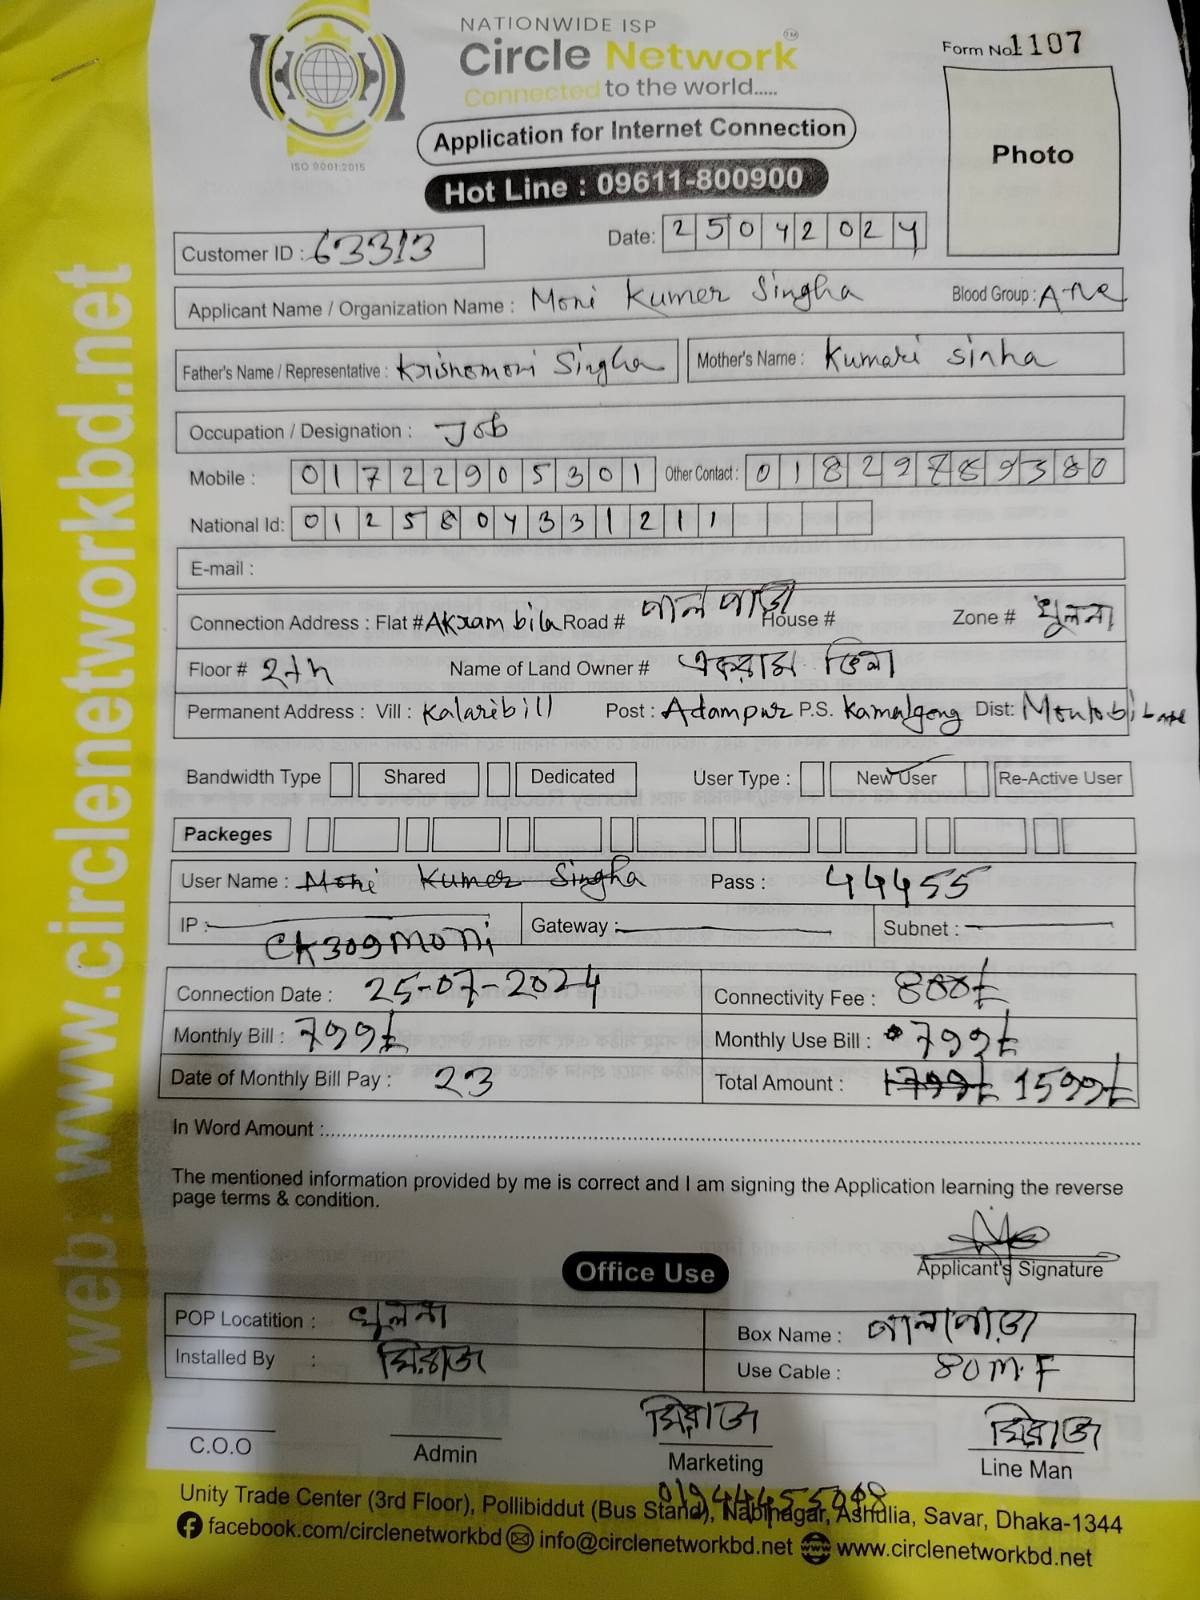 NATIONWIDE ISP
Circle Network
Connected to the world.....
ISO 9001:2015
Form No. 1107
Application for Internet Connection
Photo
Hot Line : 09611-800900
Customer ID : 63313
Date: 25042024
Applicant Name / Organization Name : Moni Kumer Singha Blood Group : A+ve
Father's Name / Representative : Krishomoni Singha Mother's Name : Kumari sinha
Occupation / Designation : Job
Mobile : 01722905301 Other Contact : 01829789380
National Id: 0125804331211
E-mail :
Connection Address : Flat # Akram bila Road # পাল পাড়া House # Zone # খুলনা
Floor # 2th Name of Land Owner # একরাম ভিলা
Permanent Address : Vill : Kalaribill Post : Adampur P.S. Kamalgong Dist:
Bandwidth Type Shared Dedicated User Type : New User Re-Active User
Packeges
User Name : Moni Kumer Singha Pass : 44455
IP : Gateway : Subnet :
CK309moni
Connection Date : 25-07-2024 Connectivity Fee : 800৳
Monthly Bill : 799৳ Monthly Use Bill : 799৳
Date of Monthly Bill Pay : 23 Total Amount : 1799৳ 1599৳
In Word Amount :
The mentioned information provided by me is correct and I am signing the Application learning the reverse
page terms & condition.
Applicant's Signature
Office Use
POP Locatition : খুলনা Box Name : পালপাড়া
Installed By : মিরাজ Use Cable : 80 m. F
মিরাজ মিরাজ
C.O.O Admin Marketing Line Man
Unity Trade Center (3rd Floor), Pollibiddut (Bus Stand), Nabinagar, Ashulia, Savar, Dhaka-1344
facebook.com/circlenetworkbd info@circlenetworkbd.net www.circlenetworkbd.net
web: www.circlenetworkbd.net